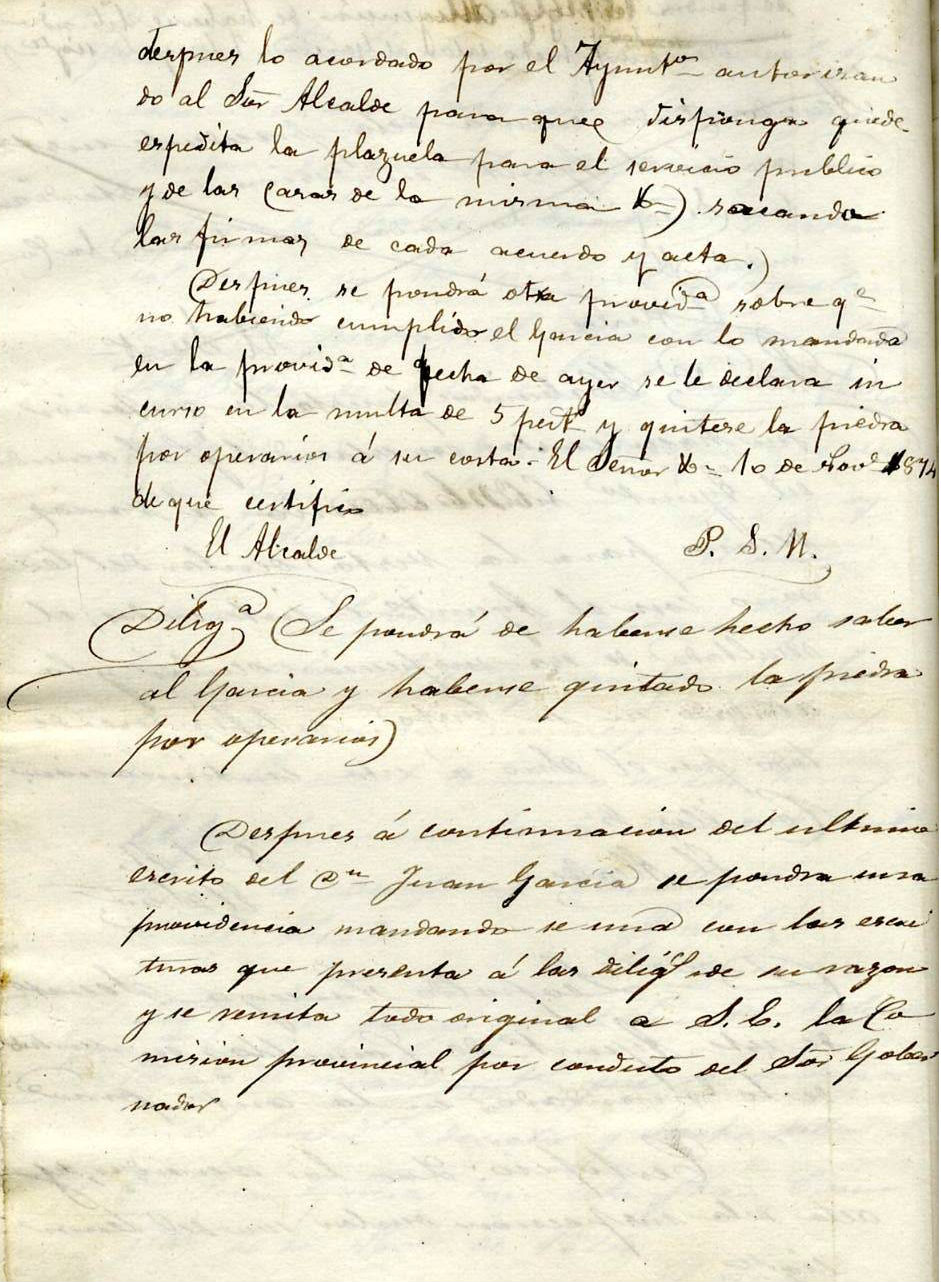 despues lo acordado por el Ayuntº autorizan
do al Sor Alcalde para que disponga quede
espedita la plazuela para el servicio publico
y de las casas de la misma &) sacando
las firmas de cada acuerdo y acta.)
Despues se pondrá otra providª sobre qe
no habiendo cumplido el Garcia con lo mandado
en la providª de fecha de ayer se le declara in
curso en la multa de 5 pest y quitese la piedra
por operarios á su costa. El Señor & 10 de Nove 1874
de que certifico
El Alcalde P. S. M.
Diligª (Se pondrá de haberse hecho saber
al Garcia y haberse quitado la piedra
por operarios)
Despues á continuacion del ultimo
escrito del Dn Juan Garcia se pondra una
providencia mandando se una con las escri
turas que presenta á las diligs de su razon
y se remita todo original a S. E. la Co
mision provincial por conducto del Sor Gober
nador